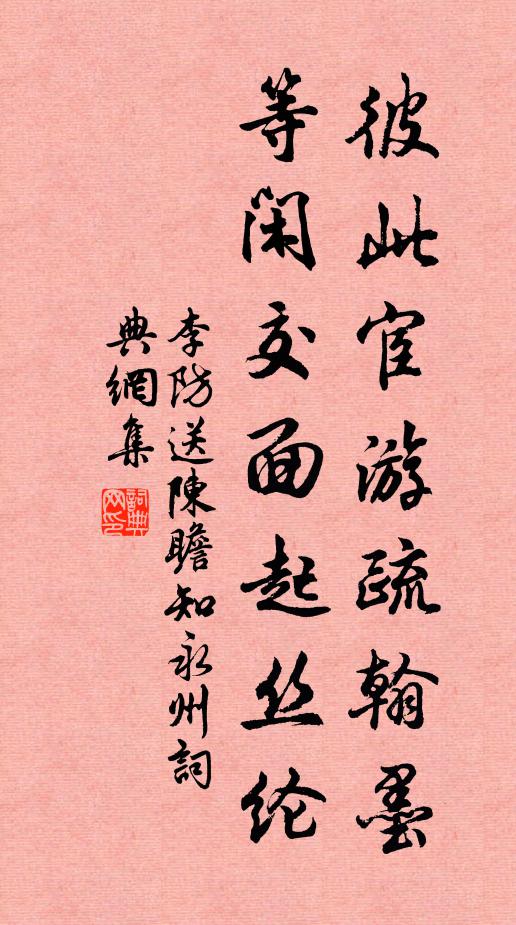 彼此宦游疏翰墨
等闲交面起丝纶
李防送陳瞻知永州詞
典網集
詞典网印